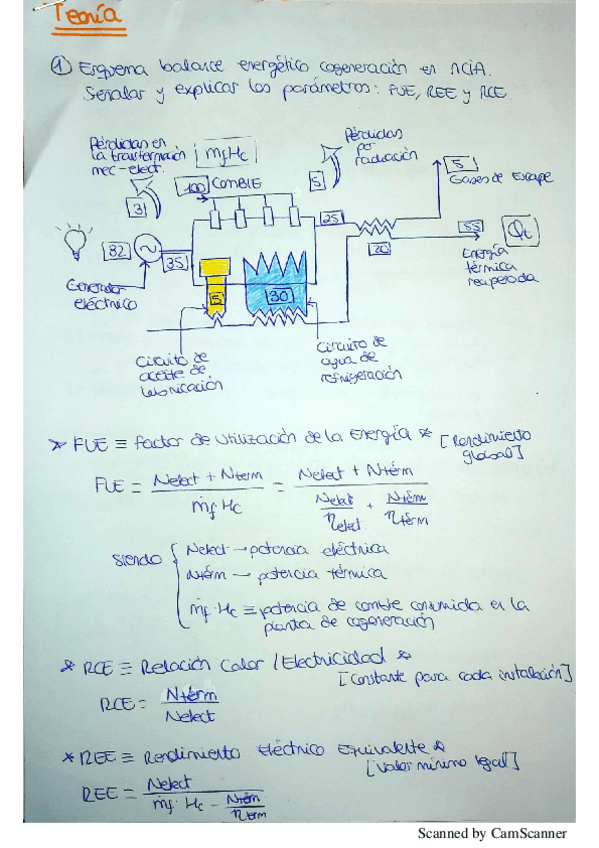 Teoría
① Esquema balance energético cogeneración en MCIA.
Señalar y explicar los parámetros: FUE, REE y RCE.
Pérdidas en
la transformación
mec-elect.
ṁfHc
100
COMBLE
Pérdidas
por
radiación
5
5
Gases de Escape
3
25
55
Qt
32
35
20
Energía
térmica
recuperada
Generador
eléctrico
5
30
Circuito de
aceite de
lubricación
Circuito de
agua de
refrigeración
* FUE ≡ Factor de Utilización de la Energía * [Rendimiento
global]
FUE = Nelect + Nterm / ṁf Hc = Nelect + Ntérm / Nelect/ηelect + Ntérm/ηtérm
siendo { Nelect → potencia eléctrica
Ntérm → potencia térmica
ṁf·Hc ≡ potencia de comble consumida en la
planta de cogeneración
* RCE ≡ Relación Calor / Electricidad *
[Constante para cada instalación]
RCE = Ntérm / Nelect
* REE ≡ Rendimiento Eléctrico Equivalente *
[Valor mínimo legal]
REE = Nelect / ṁf · Hc − Ntérm/ηterm
Scanned by CamScanner